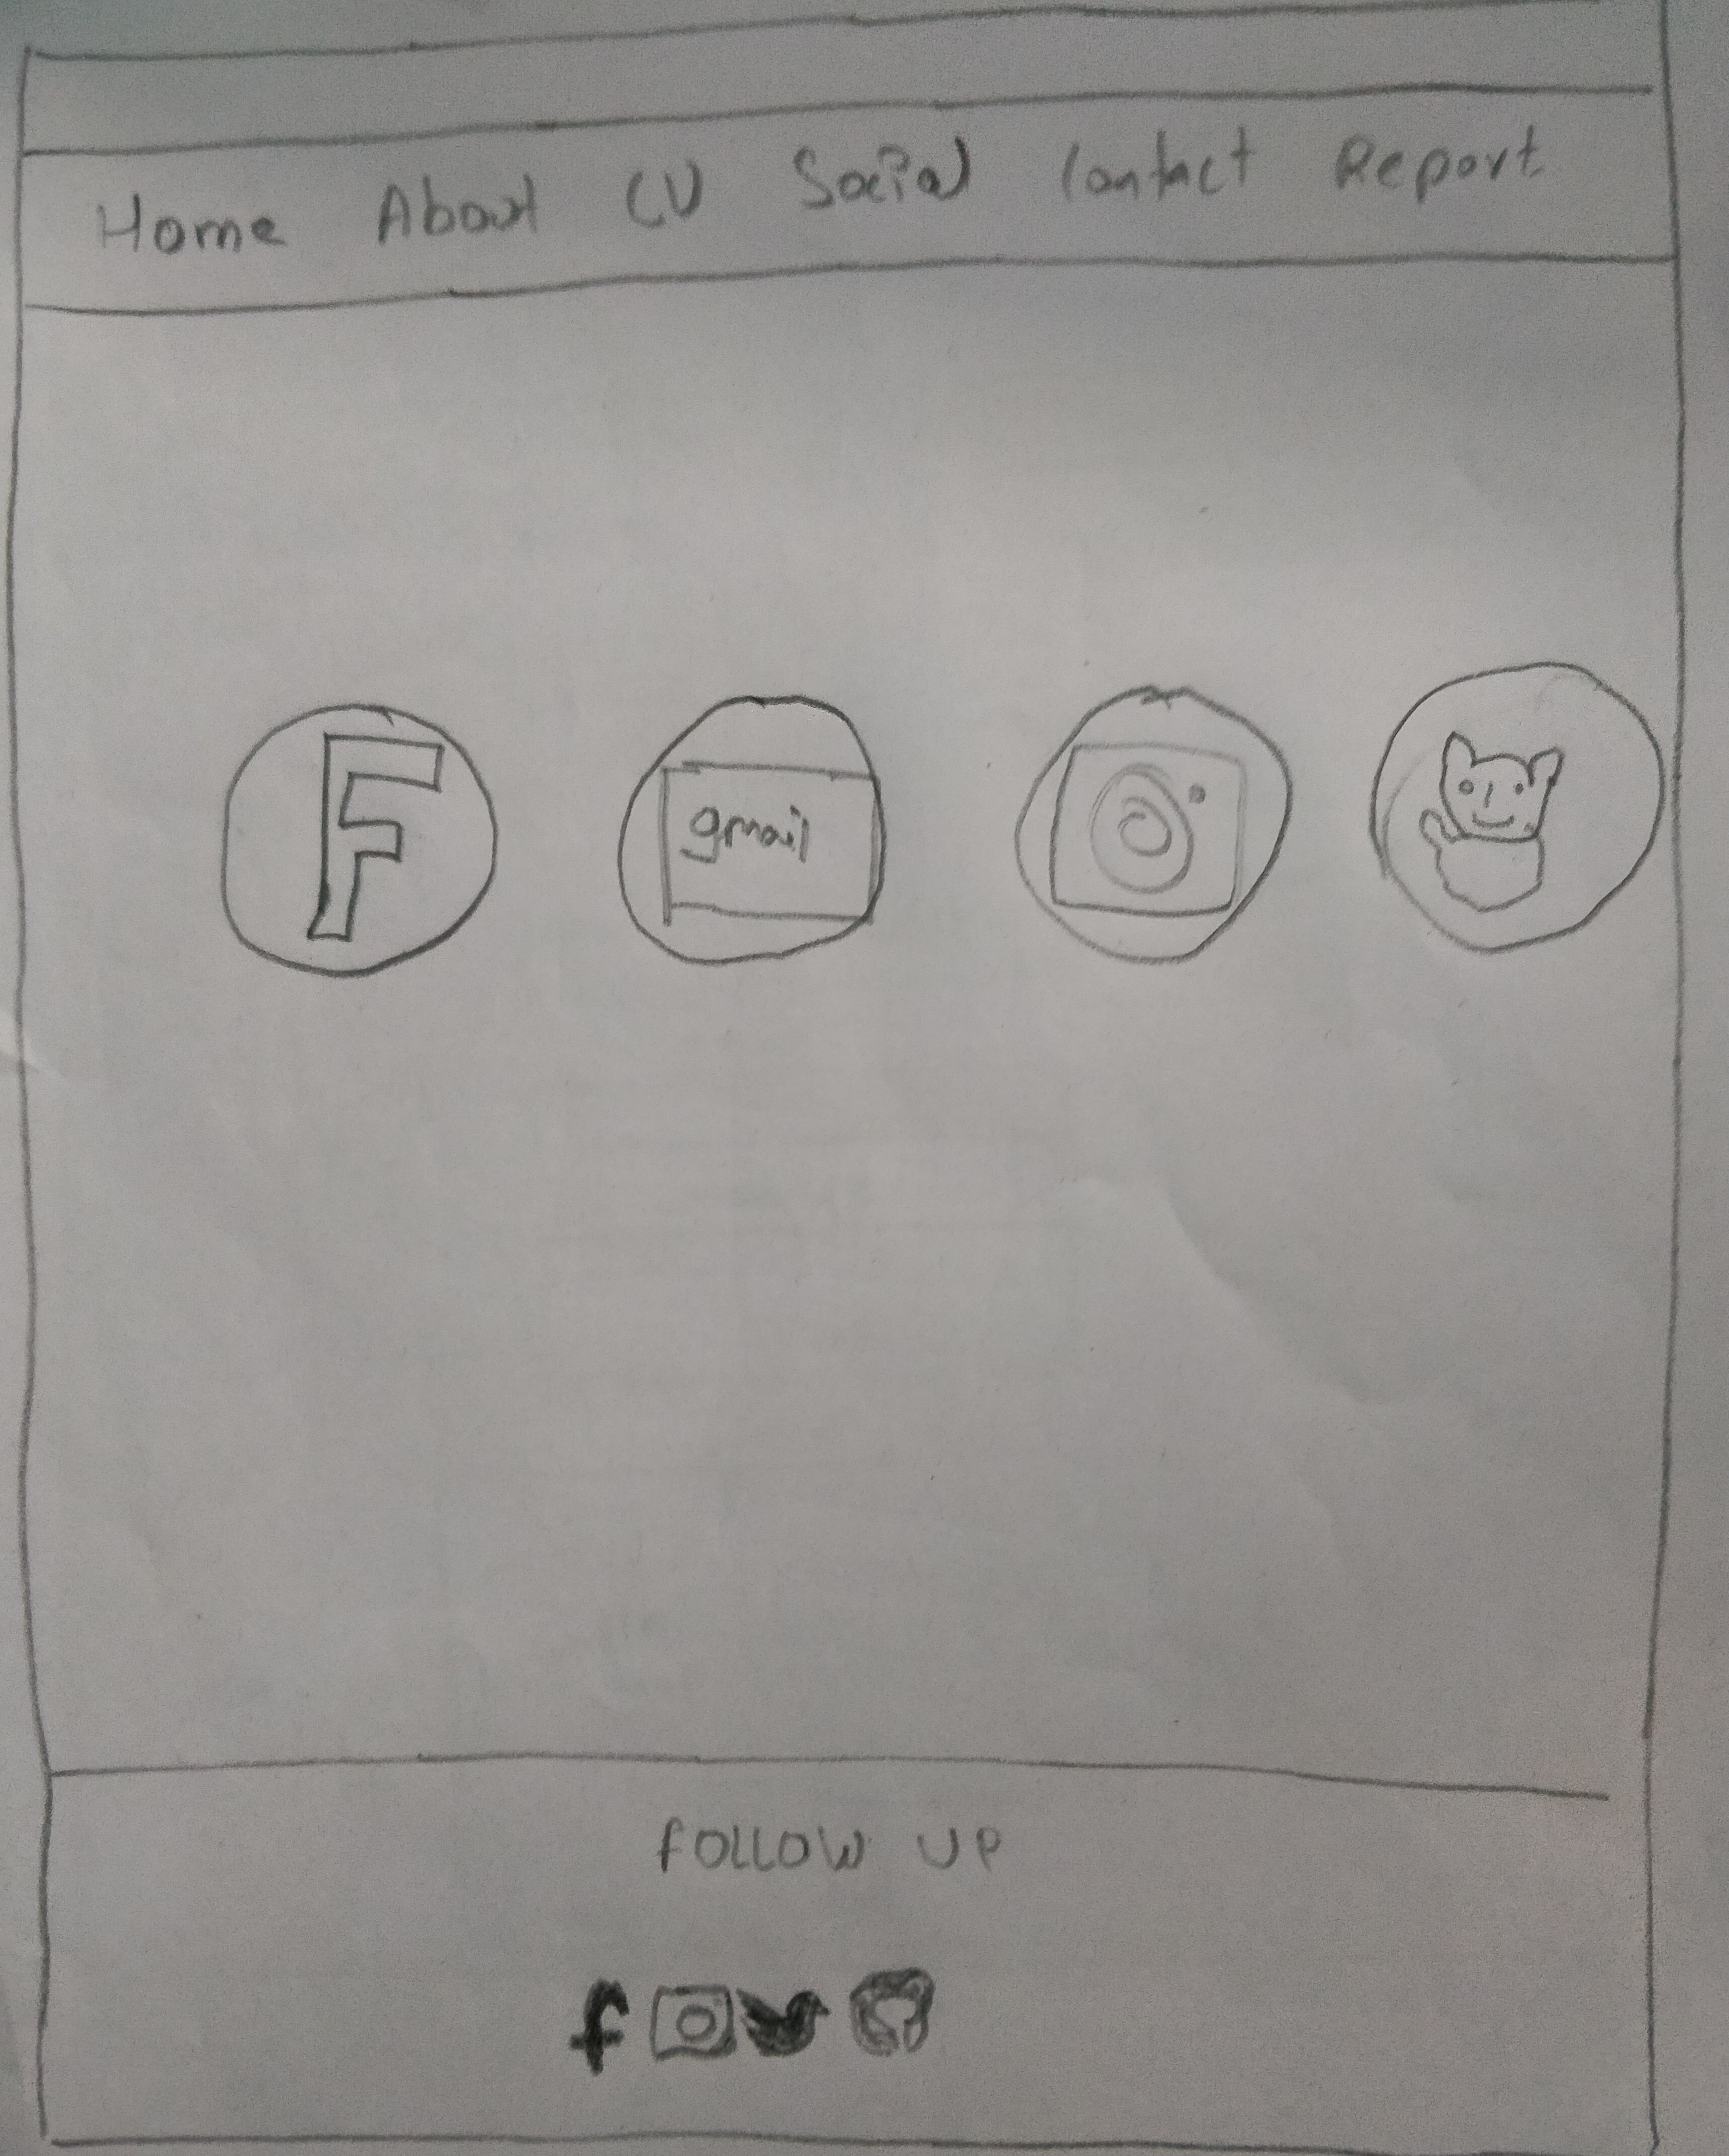 Home About CV Social Contact Report
F gmail
FOLLOW UP
f